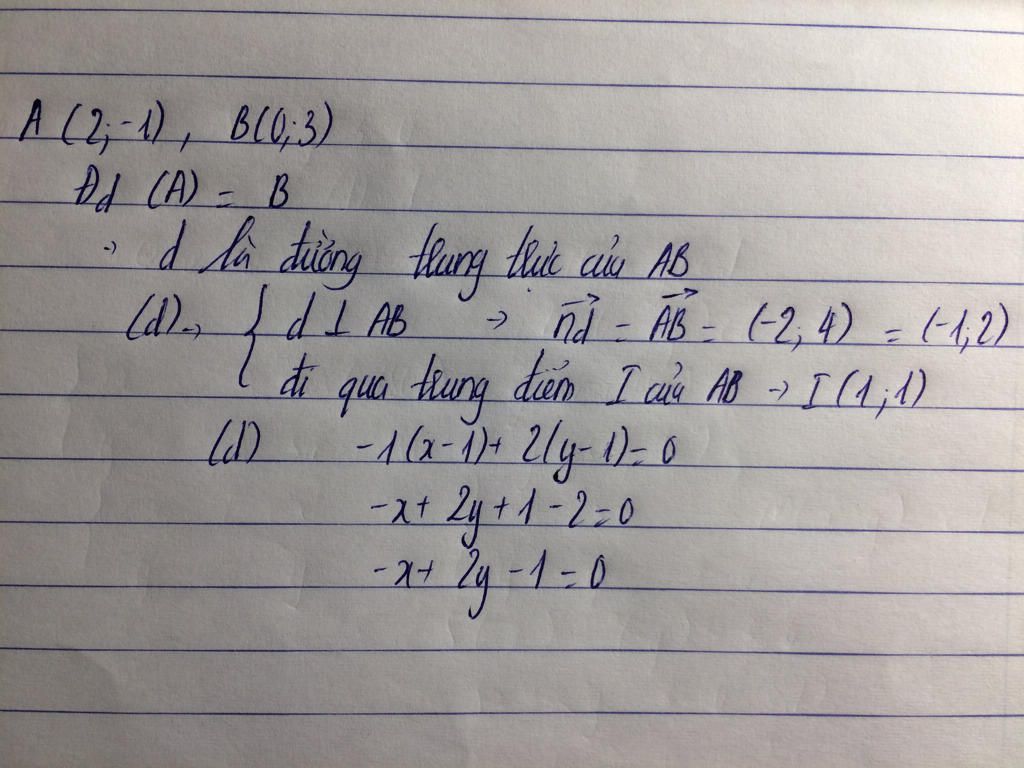 A (2;-1), B(0;3)
Đd (A) = B
→ d là đường trung trực của AB
(d) → { d ⊥ AB → \vec{nd} = \vec{AB} = (-2; 4) = (-1; 2)
đi qua trung điểm I của AB → I (1;1)
(d) -1(x-1)+ 2(y-1)=0
-x+ 2y+1-2=0
-x+ 2y-1=0